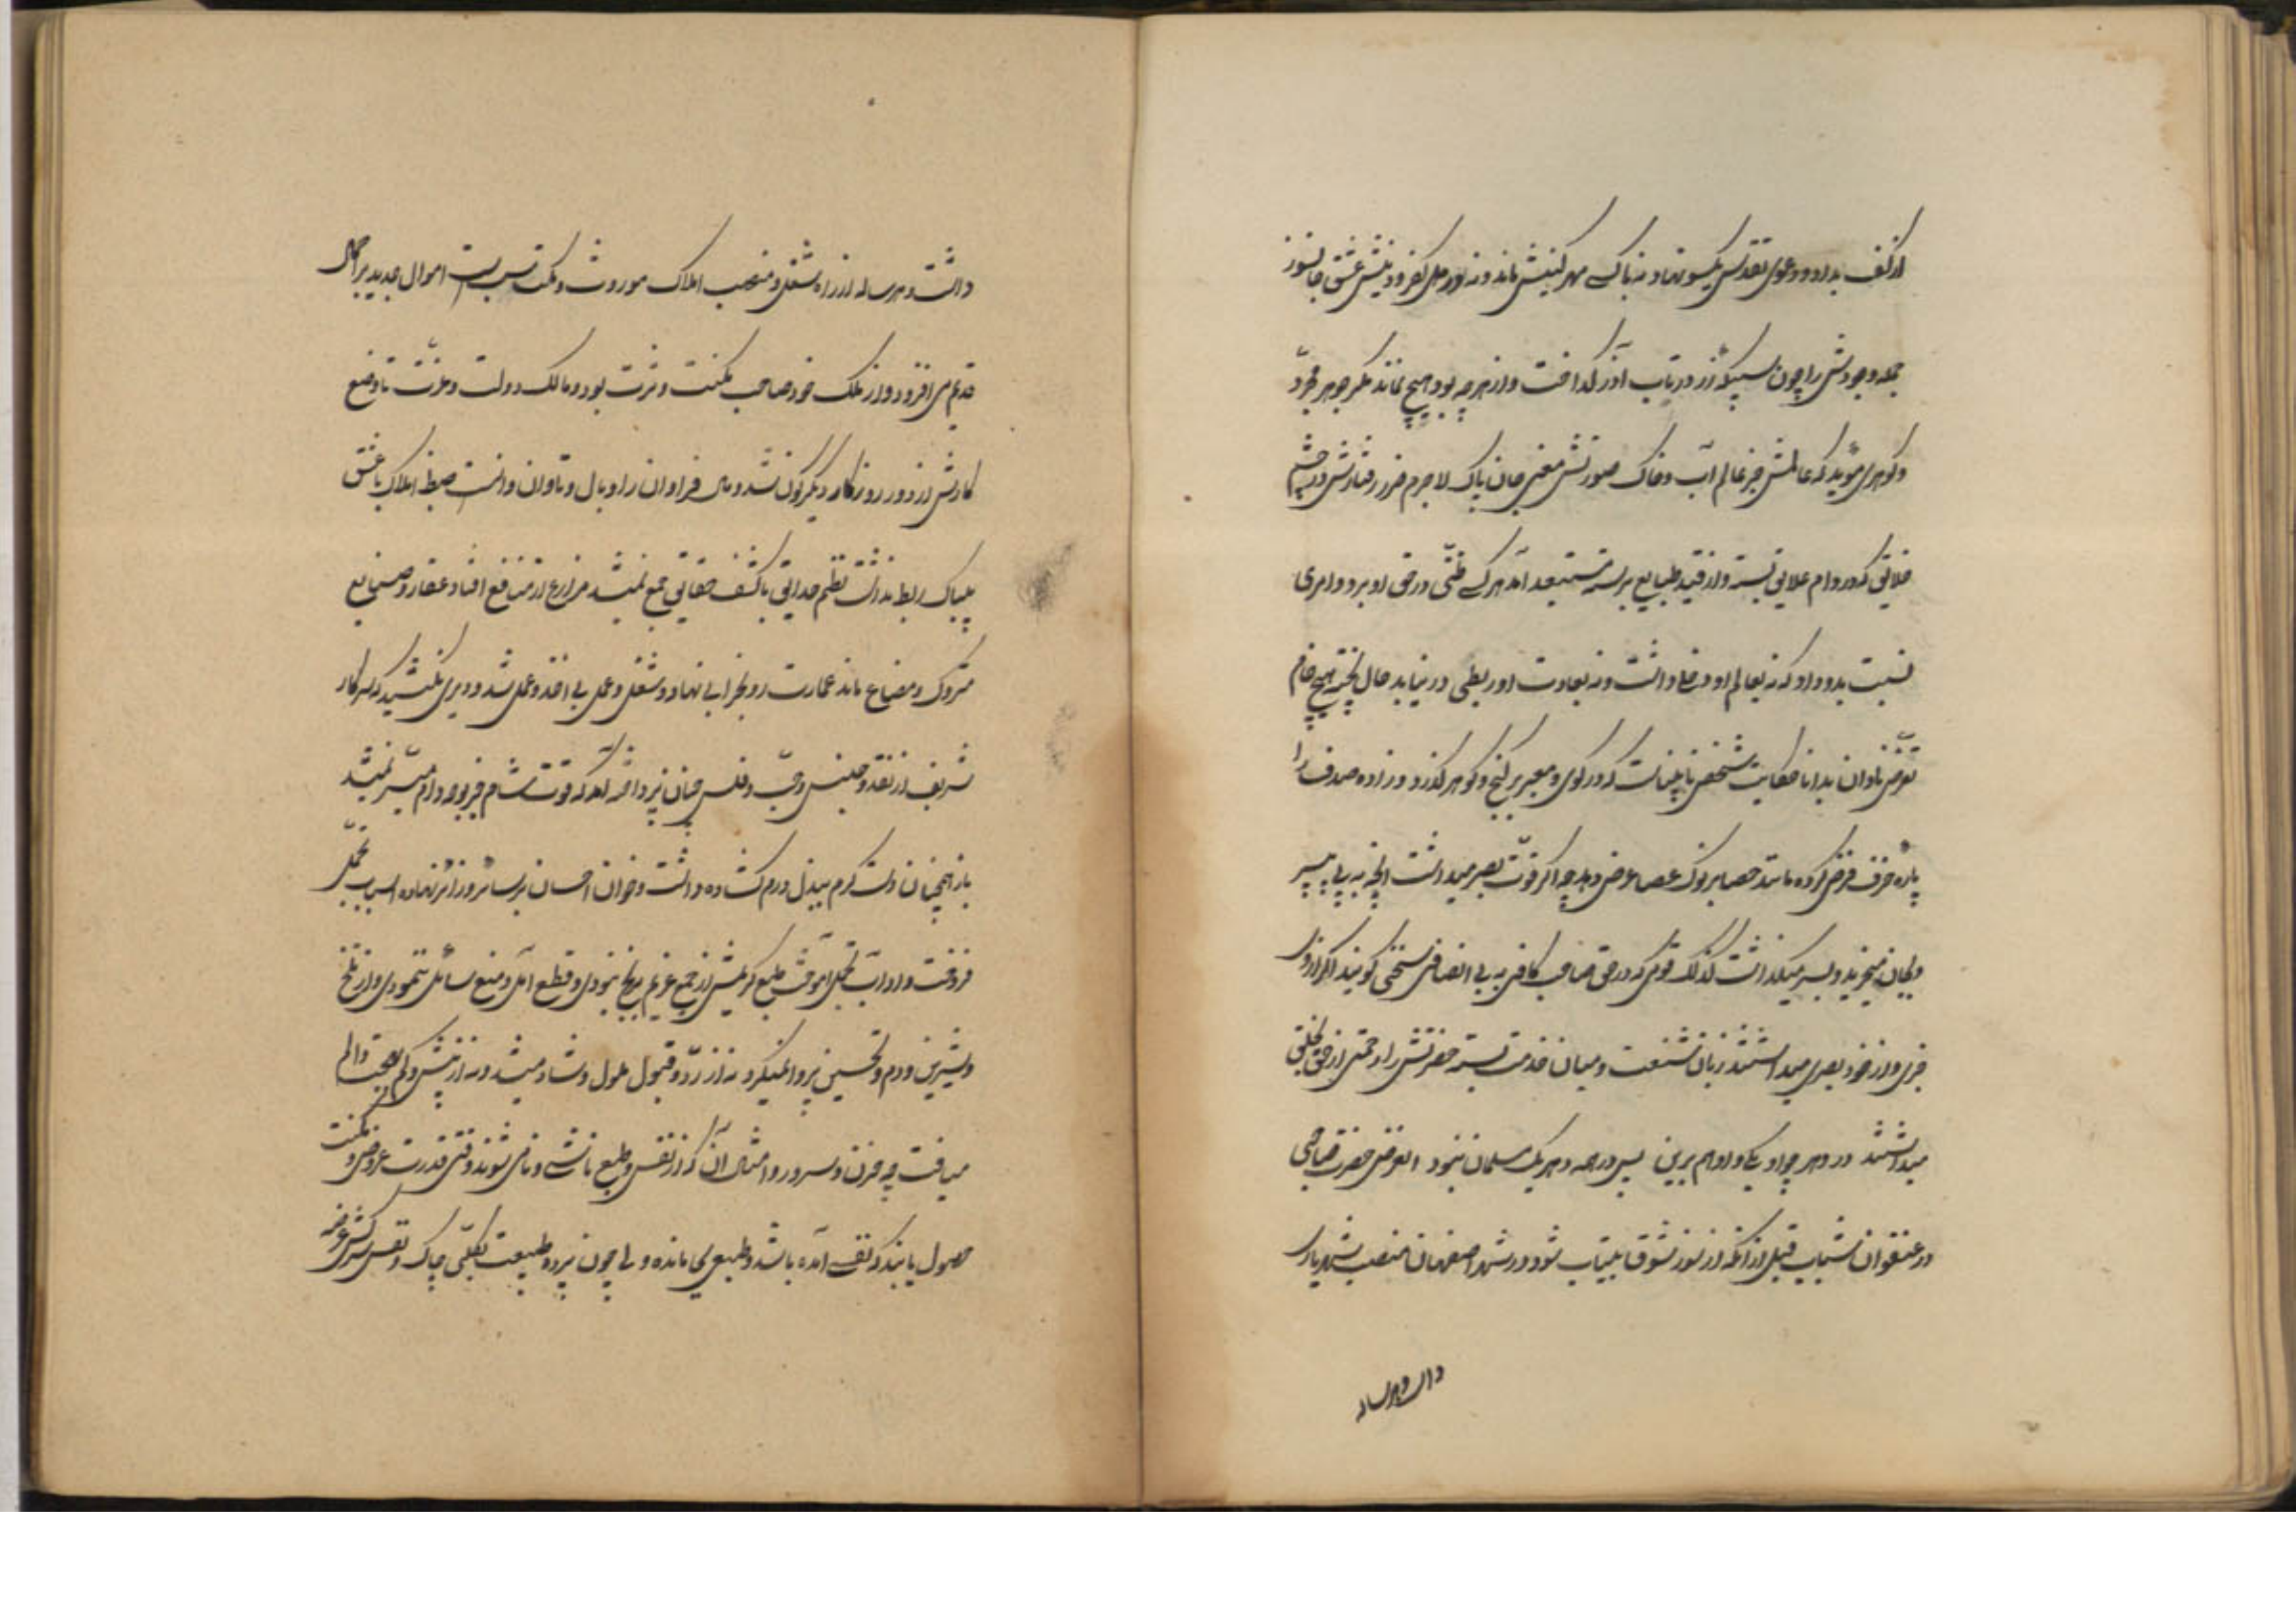 از کف بداد و دعوی تقدس یکسو نهاد نه باک مهر کنیش ماند و نه نور کفر و دینش عشق جانسوز
جمله وجودش را چون سبیکه زر در تاب آذر گداخت و از هر چه بود هیچ نماند مگر جوهر مجرد
و گوهری مؤید که عالمش جز عالم آب و خاک صورتش معنی جان پاک لاجرم طرز رفتارش در چشم
خلایق که در دام علایق بسته و از قید طبایع برسته مستبعد آمد هر کس ظنی در حق او برد و امری
نسبت بدو داد که نه بعالم او دخل داشت و نه بعادت او ربطی در نیابد حال پخته هیچ خام
تعرض نادان بدانا حکایت شخص نابیناست که در کوی و معبر بر گنج و گوهر گذرد و زاده صدف را
پاره خزف فرض کرده مانند حصا بر نوک عصا عرض دهد چه اگر قوت بصر میداشت آنچه به پی میسپرد
بجان میخرید و بسر میگذاشت کذلک قومی که در حق صاحب کافی به بی انصافی سخن گویند اگر از وی
خبری و از خود بصری میداشتند زبان شنعت و میان خدمت بسته حضرتش را رحمتی از حق بخلق
میدانستند در دهر چو او یکی و او هم برین پس در همه دهر یک مسلمان نبود الغرض حضرت صاحبی
در عنفوان شباب قبل از آنکه از سوز شوق بیتاب شود در شهر اصفهان منصب شهریاری
داشت و هر ساله
داشت و هر ساله از راه شغل و منصب املاک موروث و مکتسب اموال جدید بر
قدیم می افزود و از ملک خود صاحب مکنت و ثروت بود و مالک دولت و عزت تا وضع
کارش از دور روزگار دیگرگون شد و مال فراوان را وبال و تاوان دانست ضبط املاک با عشق
بیباک ربط نداشت نظم حدایق با کشف حقایق جمع نمیشد مزارع از منافع افتاد عقار و ضیاع
متروک و مضاع ماند عمارت رو بخرابی نهاد و شغل و عمل بی اخذ و عمل شد و دیری نکشید که سرکار
شریف از نقد و جنس و حب و فلس چنان پرداخته آمد که قوت شام جز بوجه وام میسر نمیشد
باز همچنان دست کرم ببذل درم گشاده داشت و خوان احسان بر سائر و زائر نهاده اسباب تجمل
فروخت و آداب تحمل آموخت طبع کریمش از جمع غریم برنج نبودی و قطع امل و منع سائل ننمودی و از تلخ
و شیرین و ذم و تحسین پروا نمیکرد نه از رد و قبول ملول و شاد میشد و نه از بیش و کم بهجت و الم
مییافت چه حزن و سرور و امثال آن که از نفس و طبع ناشی و نامی شوند وقتی قدرت عروض و مکنت
حصول یابند که نفسی آمده باشد و طبعی بجا مانده ولی چون پرده طبیعت بکلی چاک و نفس سرکش عرضه